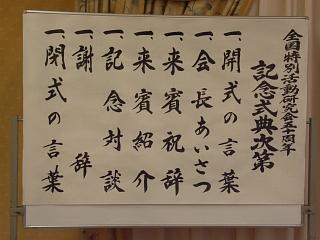 全国特別活動研究会三十周年
記念式典次第
一、開式の言葉
一、会長あいさつ
一、来賓祝辞
一、来賓紹介
一、記念対談
一、謝辞
一、閉式の言葉